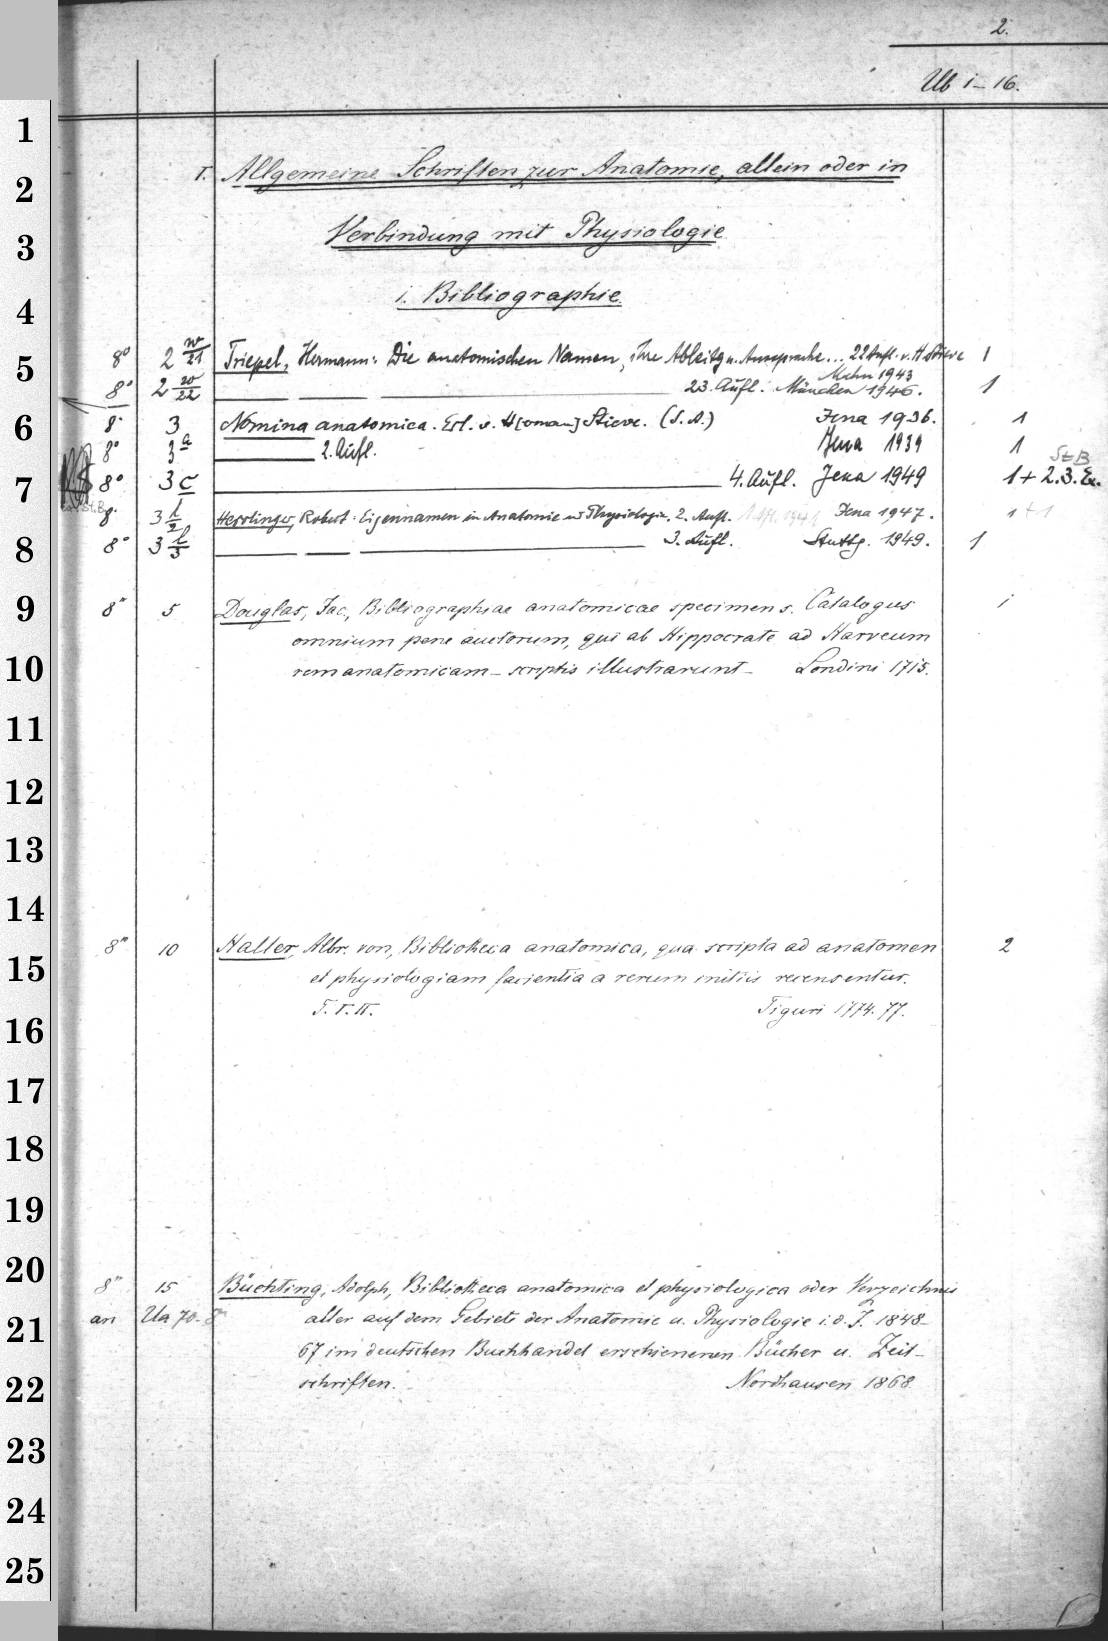 2.
Ub 1-16.
I. Allgemeine Schriften zur Anatomie, allein oder in
Verbindung mit Physiologie
1. Bibliographie.
8° 2 w/21 Triepel, Hermann: Die anatomischen Namen, ihre Ableitg u. Aussprache... 22 Aufl. v. H. Stieve 1
Mchn 1943
8° 2 w/22 23. Aufl. München 1946. 1
8° 3 Nomina anatomica. Erl. v. H[erman] Stieve. (S.A.) Jena 1936. 1
8° 3a 2. Aufl. Jena 1939 1
StB
8° 3c 4. Aufl. Jena 1949 1+2.3. Ex.
8° 3 l/2 Herrlinger, Robert: Eigennamen in Anatomie u. Physiologie. 2. Aufl. Jena 1947. 1+1
8° 3 l/3 3. Aufl. Stuttg. 1949. 1
8° 5 Douglas, Jac., Bibliographiae anatomicae specimen s. Catalogus 1
omnium pene auctorum, qui ab Hippocrate ad Harveum
rem anatomicam - scriptis illustrarunt - Londini 1715.
8° 10 Haller, Albr. von, Bibliotheca anatomica, qua scripta ad anatomen 2
et physiologiam facientia a rerum initiis recensentur.
T. I. II. Tiguri 1774. 77.
8° 15 Büchting, Adolph, Bibliotheca anatomica et physiologica oder Verzeichnis
an Ua 70. 8° aller auf dem Gebiete der Anatomie u. Physiologie i. d. J. 1848-
67 im deutschen Buchhandel erschienenen Bücher u. Zeit-
schriften. Nordhausen 1868.
1
2
3
4
5
6
7
8
9
10
11
12
13
14
15
16
17
18
19
20
21
22
23
24
25